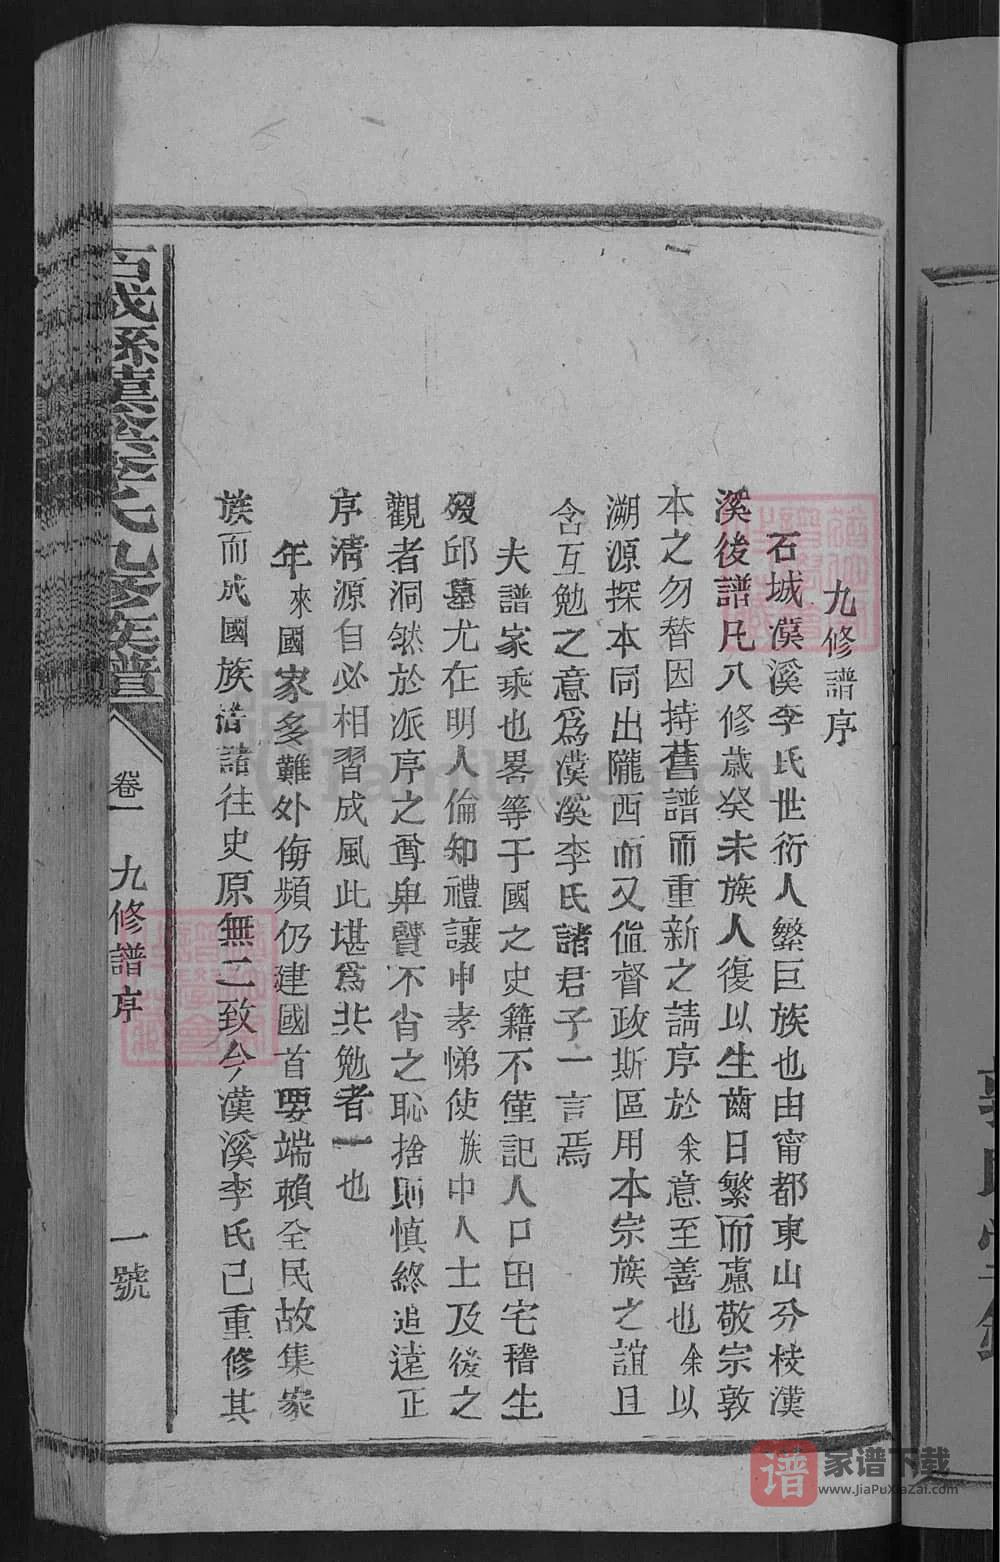 九修譜序
石城漢溪李氏世衍人繁巨族也由甯都東山分枝漢
溪後譜凡八修歲癸未族人復以生齒日繁而慮敬宗敦
本之勿替因持舊譜而重新之請序於余意至善也余以
溯源探本同出隴西而又值督政斯區用本宗族之誼且
含互勉之意為漢溪李氏諸君子一言焉
夫譜家乘也畧等于國之史籍不僅記人口田宅稽生
歿邱墓尤在明人倫知禮讓申孝悌使族中人士及後之
觀者洞然於派序之尊卑賢不肖之恥捨則慎終追遠正
序清源自必相習成風此堪為共勉者一也
年來國家多難外侮頻仍建國首要端賴全民故集家
族而成國族諸往史原無二致今漢溪李氏已重修其
石城縣漢溪李氏九修族譜
卷一
九修譜序
一號
家谱下载
www.JiaPuXiaZai.com
谱